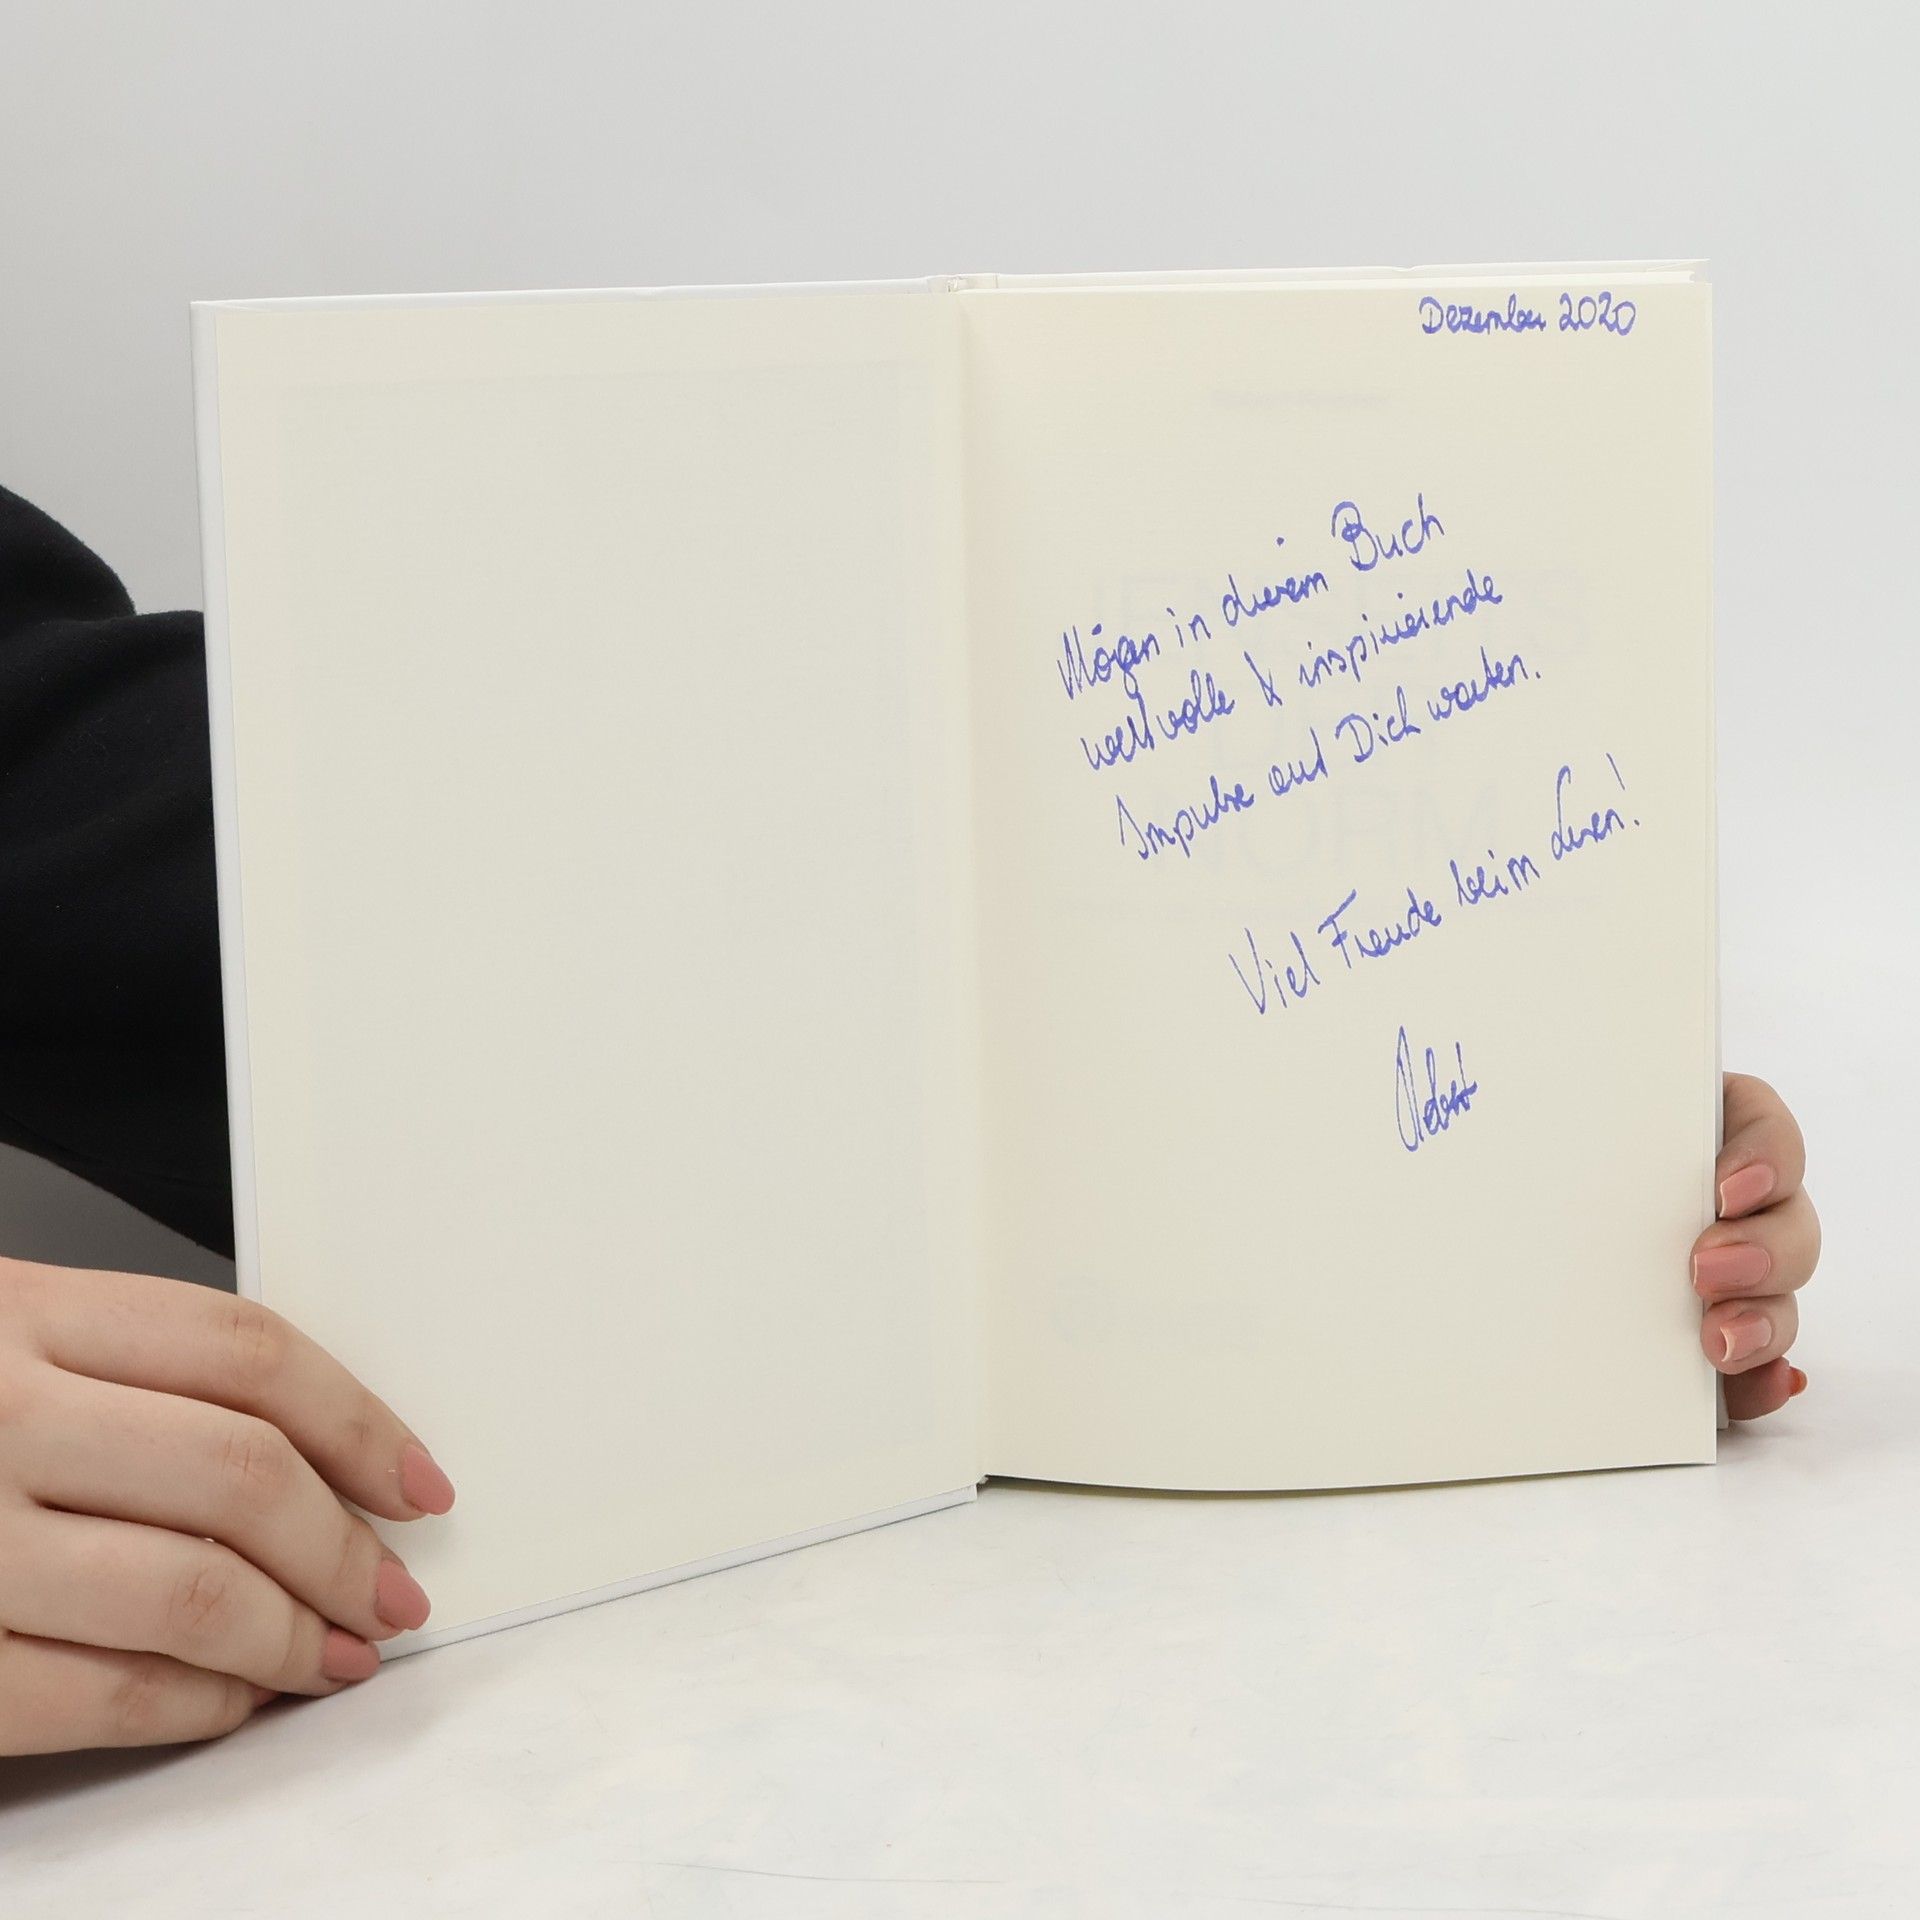 Dezember 2020
Mögen in diesem Buch
wertvolle & inspirierende
Impulse auf Dich warten.
Viel Freude beim Lesen!